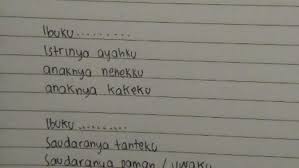 Ibuku .........
Istrinya ayahku
anaknya nenekku
anaknya kakekku
Ibuku .........
Saudaranya tanteku
Saudaranya paman / uwaku